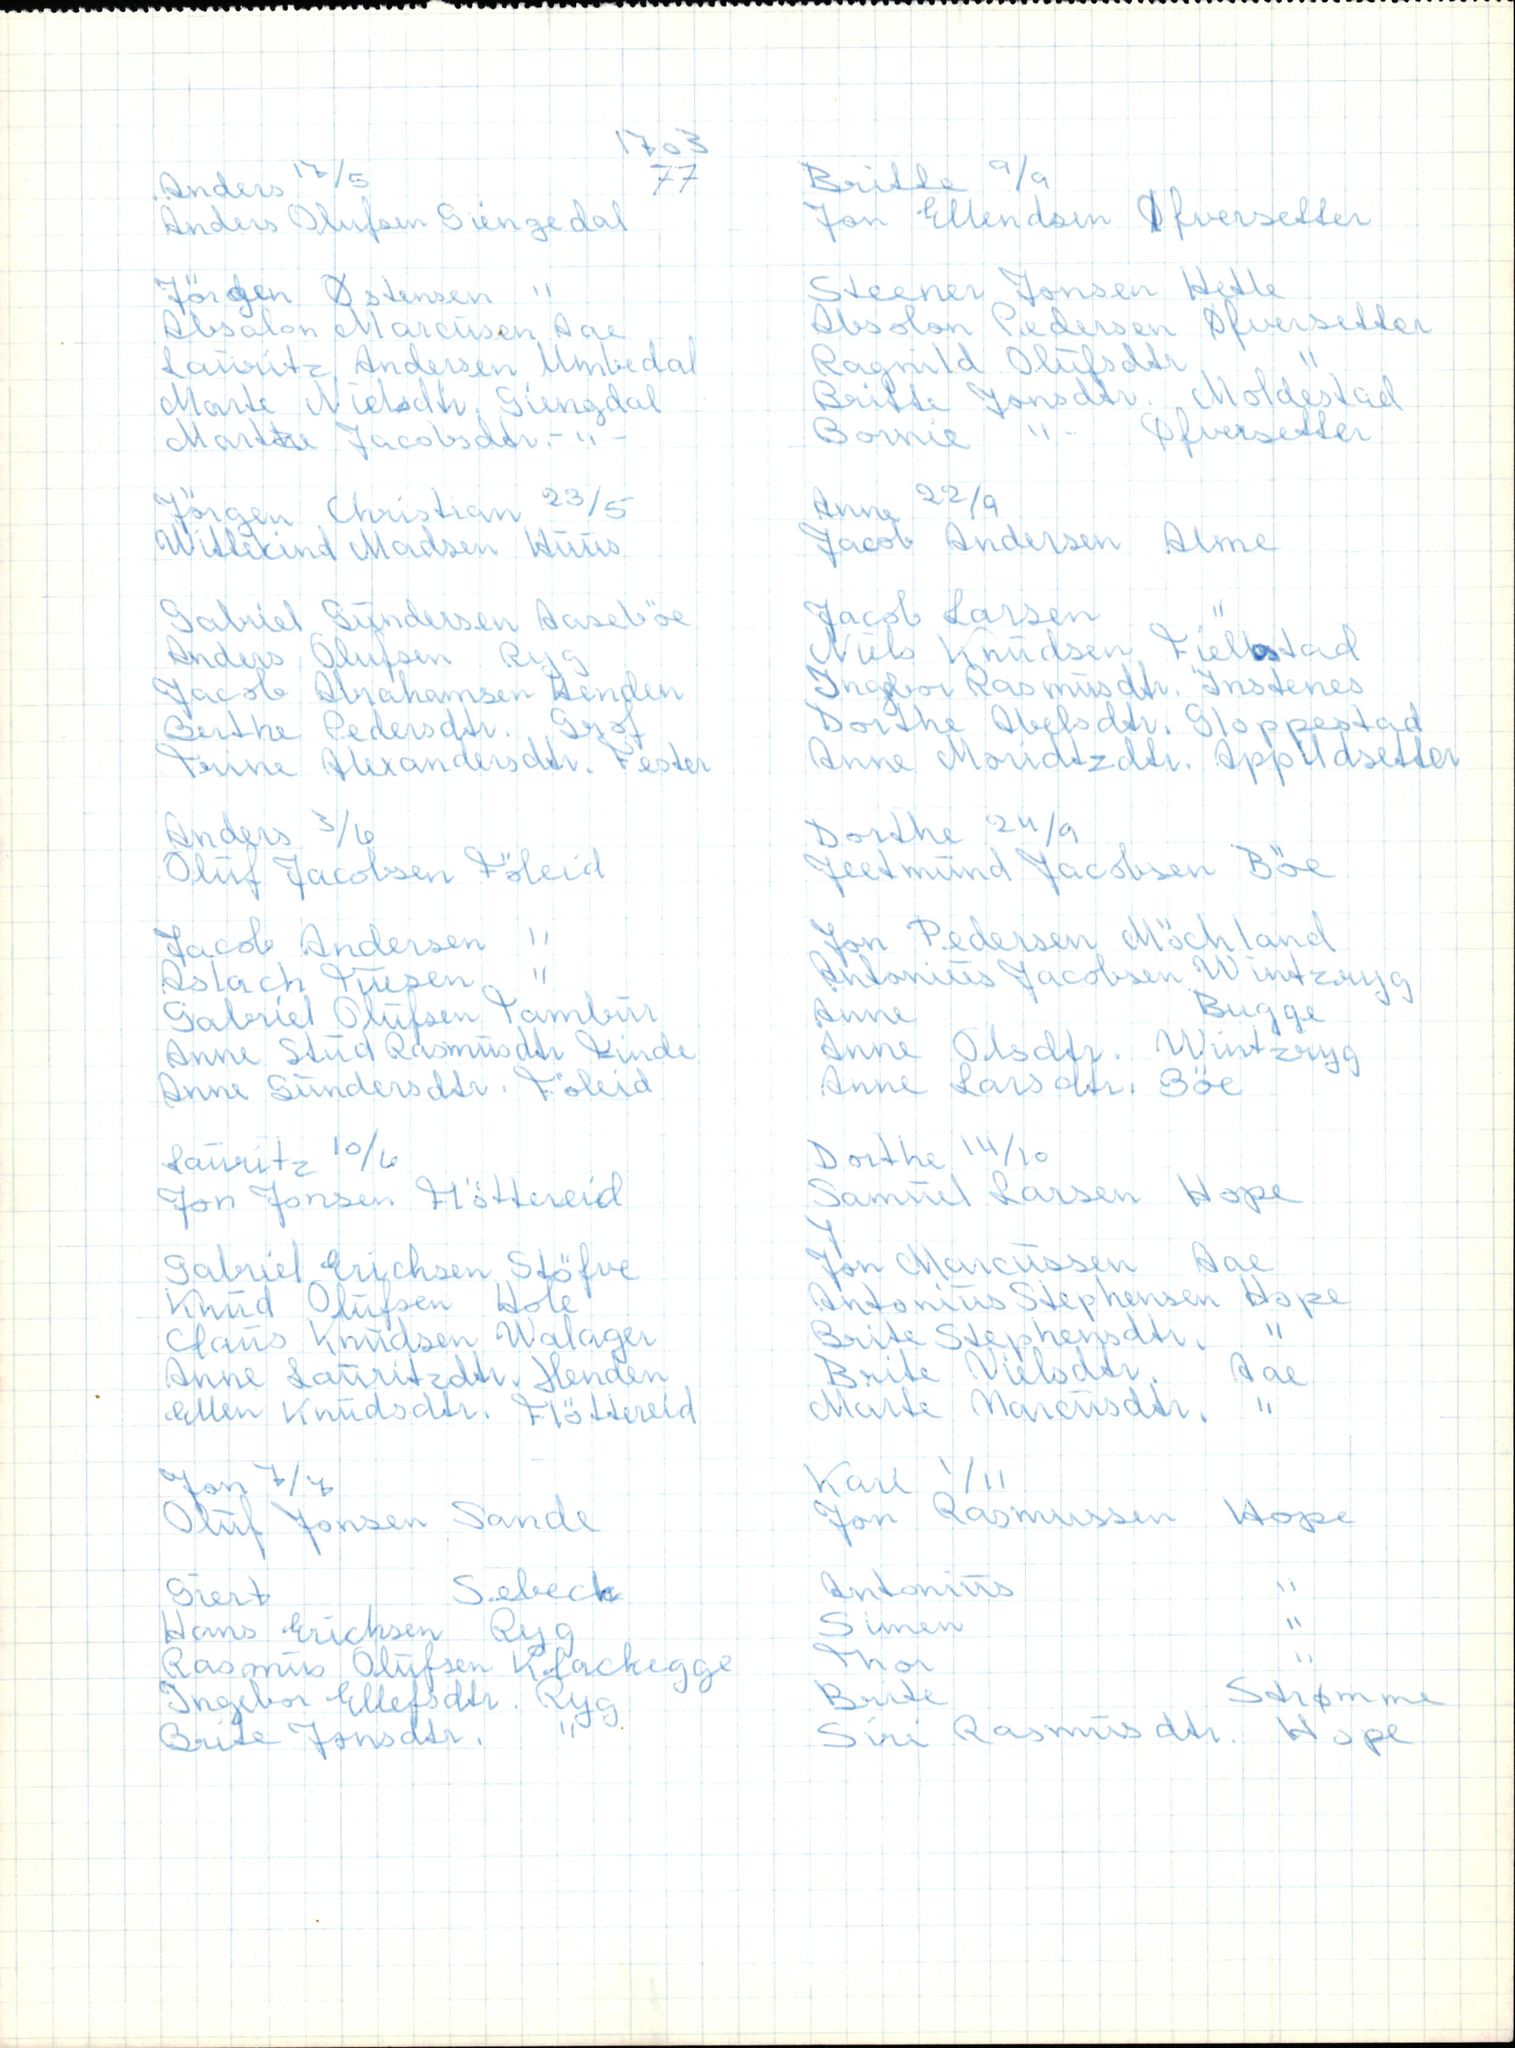 1703
77
Anders 17/5
Anders Olufsen Giengedal
Jörgen Østensen "
Absalon Marcüsen Aae
Laüritz Andersen Umbedal
Marte Nielsdtr. Giengdal
Martte Jacobsdtr. - " -
Jörgen Christian 23/5
Wittikind Madsen Hüüs
Gabriel Gündersen Aaseböe
Anders Olufsen Ryg
Jacob Abrahamsen Henden
Berthe Pedersdtr. Gröf
Trine Alexandersdtr. Fester
Anders 3/6
Olüf Jacobsen Föleid
Jacob Andersen "
Aslach Tüesen "
Gabriel Olüfsen Tambür
Anne Stüd Rasmüsdtr Linde
Anne Gündersdtr. Föleid
Laüritz 10/6
Jon Jonsen Flöttereid
Gabriel Erichsen Stöfve
Knüd Olüfsen Hole
Claüs Knüdsen Walager
Anne Laüritzdtr. Henden
Ellen Knüdsdtr. Flöttereid
Jon 7/7
Olüf Jonsen Sande
Giert Sebeck
Hans Erichsen Ryg
Rasmüs Olüfsen Klackegge
Ingebor Ellefsdtr. Ryg
Brite Jonsdtr. "
Britte 9/9
Jon Ellendsen Øfversetter
Steener Jonsen Hetle
Absolon Pedersen Øfversetter
Ragnild Olüfsdtr "
Britte Jonsdtr. Moldestad
Bornie " - Øfversetter
Anne 22/9
Jacob Andersen Alme
Jacob Larsen "
Niels Knüdsen Fiellestad
Ingbor Rasmüsdtr. Instenes
Dorthe Abelsdtr. Gloppestad
Anne Moridtzdtr. Appildsetter
Dorthe 24/9
Jeetmünd Jacobsen Böe
Jon Pedersen Möchland
Antoniüs Jacobsen Wintzryg
Anne Bugge
Anne Olsdtr. Wintzryg
Anne Larsdtr. Böe
Dorthe 14/10
Samüel Larsen Hope
Jon Marcüssen Aae
Antoniüs Stephensen Hope
Brite Stephensdtr. "
Brite Nielsdtr. Aae
Marte Marcüsdtr. "
Karl 1/11
Jon Rasmussen Hope
Antoniüs "
Simen "
Thor "
Brite Strømme
Siri Rasmüsdtr. Hope